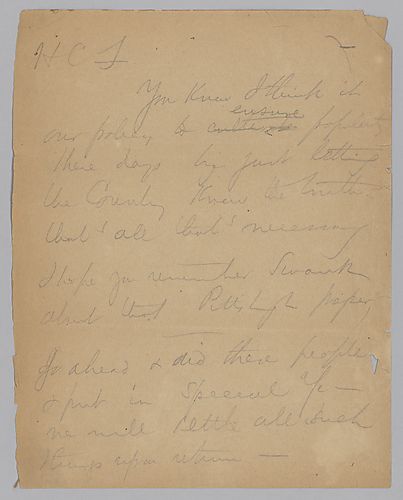 H C F
You know I think it
our policy to ensure popular
these days by just letting
the Country know the truth
that's all that's necessary
I hope you remember Swank
about that Pittsburgh paper
Go ahead & did these people
& put in Special a/c —
we will settle all such
things upon return —